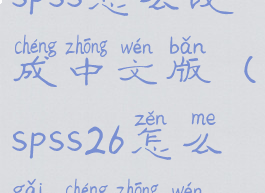 spss怎么改
chéng zhōng wén bǎn
成中文版（
zěn me
spss26怎么
gǎi chéng zhōng wén